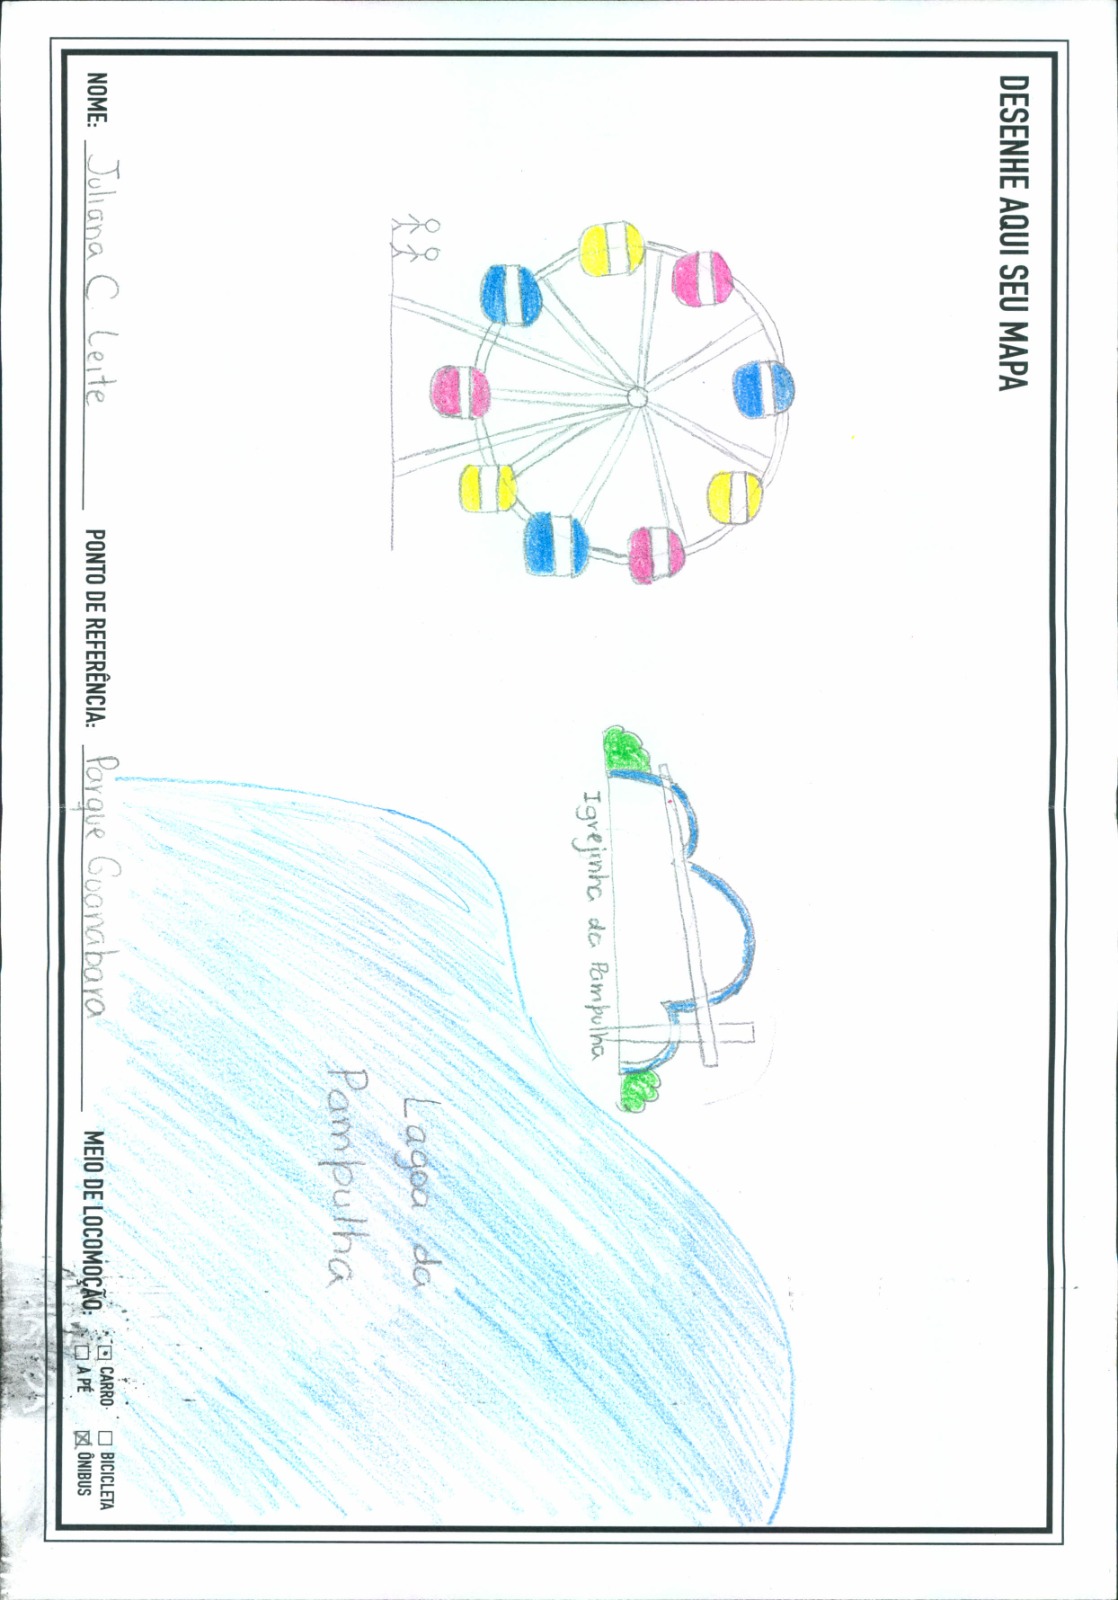 DESENHE AQUI SEU MAPA
Igrejinha da Pampulha
Lagoa da
Pampulha
NOME: Juliana C. Leite PONTO DE REFERÊNCIA: Parque Guanabara MEIO DE LOCOMOÇÃO: CARRO BICICLETA
A PÉ ÔNIBUS